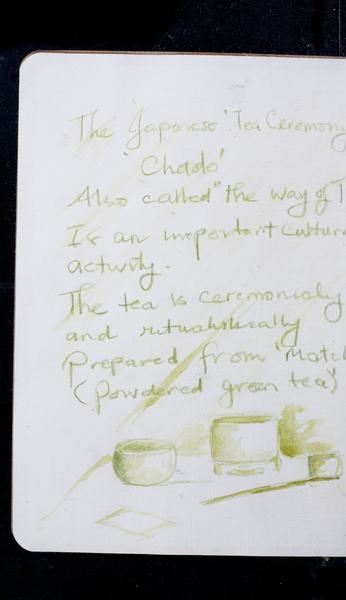 The Japonese 'Tea Ceremony
'Chado'
Also called "the way of T
Is an important cultur
activity.
The tea is ceremonialy
and
Prepared from 'Matc
(Powdered green tea)